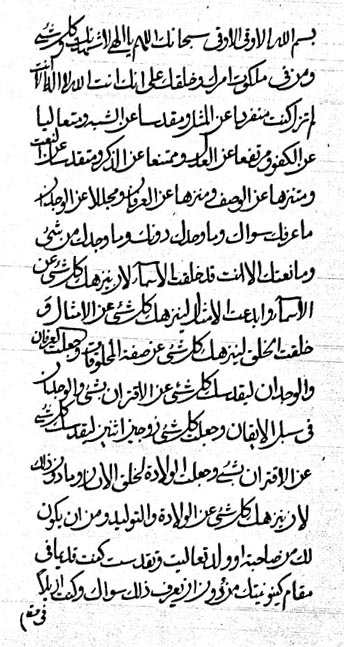 بسم الله الاوفی الاوفی سبحانک اللهم یا الهی لاشهدنک وکلشیٔ
ومن فی ملکوت امرک وخلقک علی انک انت الله لا اله الا انت
لم تزل کنت منفردا عن المثل ومقدسا عن الشبه ومتعالیا
عن الکفو ومرتفعا عن العدل وممتنعا عن الذکر ومتقدسا عن النعت
ومتنزها عن الوصف ومنزها عن العرفان ومجللا عن الوجدان
ما عرفک سواک وما وحدک دونک وما وجدک من شیٔ
وما نعتک الا انت قد خلقت الاسماء لان ینزهک کلشیٔ عن
الاسماء وابدعت الامثال لینزهک کلشیٔ عن الامثال و
خلقت الخلق لینزهک کلشیٔ عن صفة المخلوقات وجعلت العرفان
والوجدان لیقدسک کلشیٔ عن الاقتران بشیٔ والوجدان
فی سبل الایقان وجعلت کلشیٔ زوجین اثنین لیقدسک کلشیٔ
عن الاقتران بشیٔ وجعلت الولادة لخلق الانسان وما دون ذلک
لان ینزهک کلشیٔ عن الولادة والتولید ومن ان یکون
لک من صاحبة او ولد تعالیت وتقدست کنت قدیما فی
مقام کینونیتک من دون ان یعرف ذلک سواک وکنت ازلیا
فی